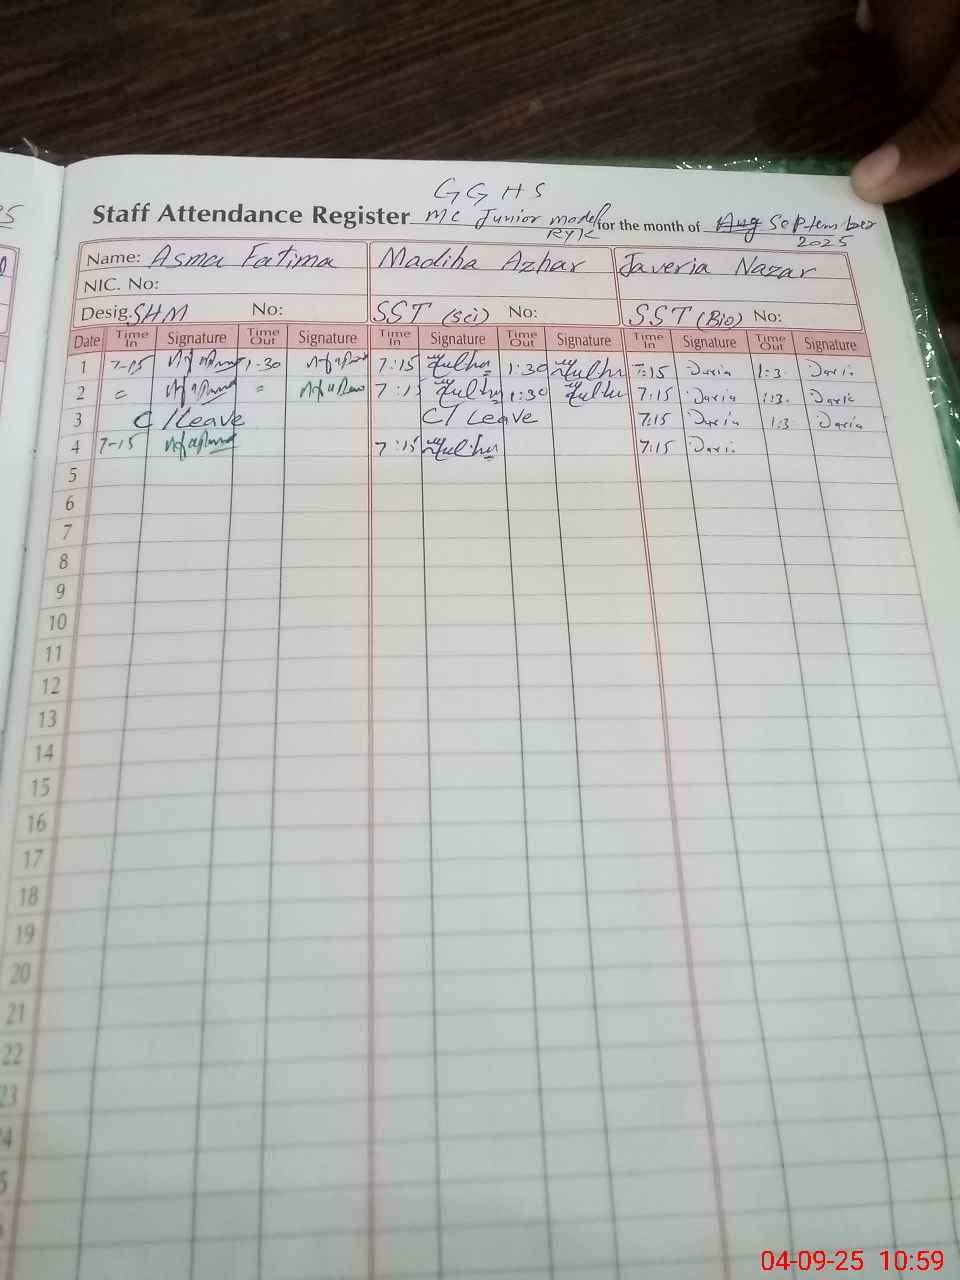 GGHS
Staff Attendance Register MC Junior model for the month of Aug September
RYK 2025
Name: Asma Fatima Madiha Azhar Javeria Nazar
NIC. No:
Desig. SHM No: SST (Sci) No: SST (Bio) No:
Date Time In Signature Time Out Signature Time In Signature Time Out Signature Time In Signature Time Out Signature
1 7-15 1:30 7:15 1:30 7:15 1:3.
2 = = 7:15 1:30 7:15 1:3.
3 C/Leave C/Leave 7:15 1:3
4 7-15 7:15 7:15
5
6
7
8
9
10
11
12
13
14
15
16
17
18
19
20
21
22
23
04-09-25 10:59